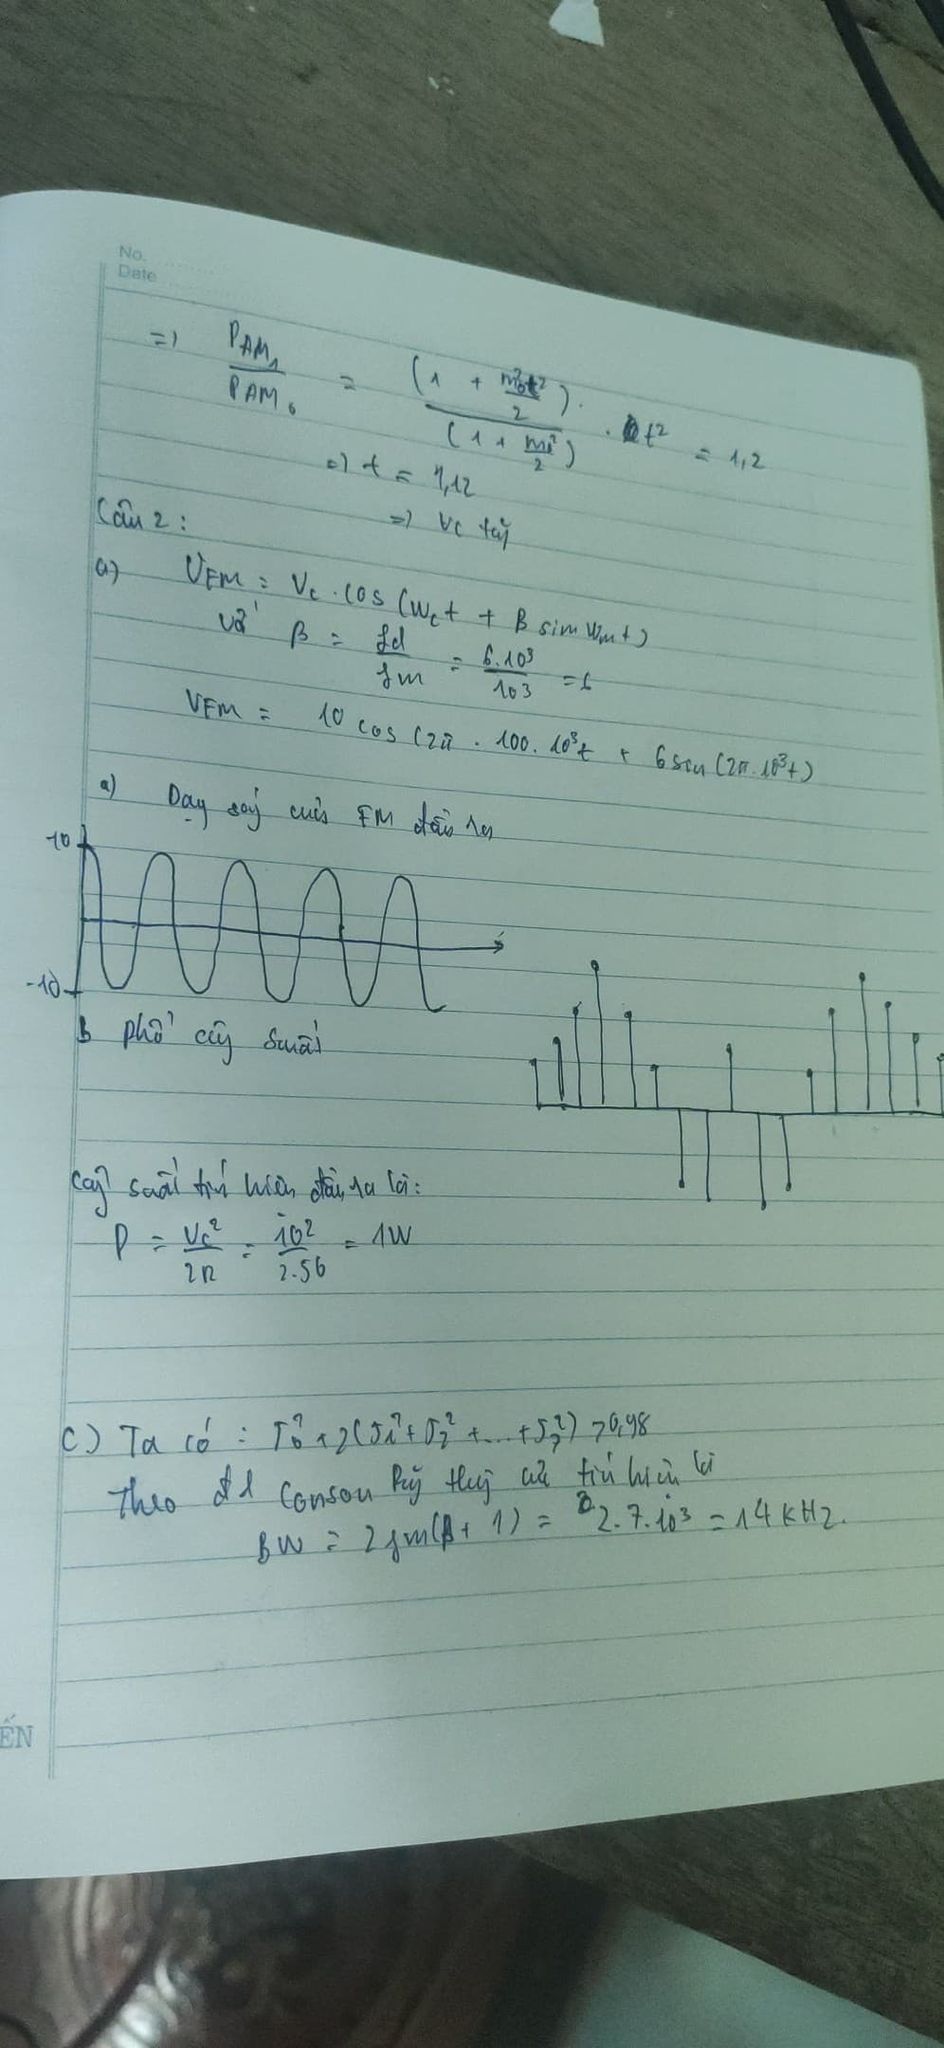 No.
Date
=) PAM1 / PAM0 = (1 + m0²t²/2) / (1 + m0²/2) . t² = 1,2
=) t = 1,12
=) Vc
Câu 2 :
a) VFM = Vc . cos (Wct + β sin Wmt)
với β = fd / fm = 6.10³ / 10³ = 6
VFM = 10 cos (2π . 100. 10³t + 6 sin (2π.10³t)
a) Dạng sóng của FM đầu ra
10
-10
b phổ công suất
Công suất tín hiệu đầu ra là:
P = Vc² / 2R = 10² / 2.50 = 1W
C) Ta có : J0² + 2(J1² + J2² + ... + J7²) > 0,98
Theo đl tín hiệu là
BW = 2 fm(β + 1) = 2.7.10³ = 14 kHz.
ẾN